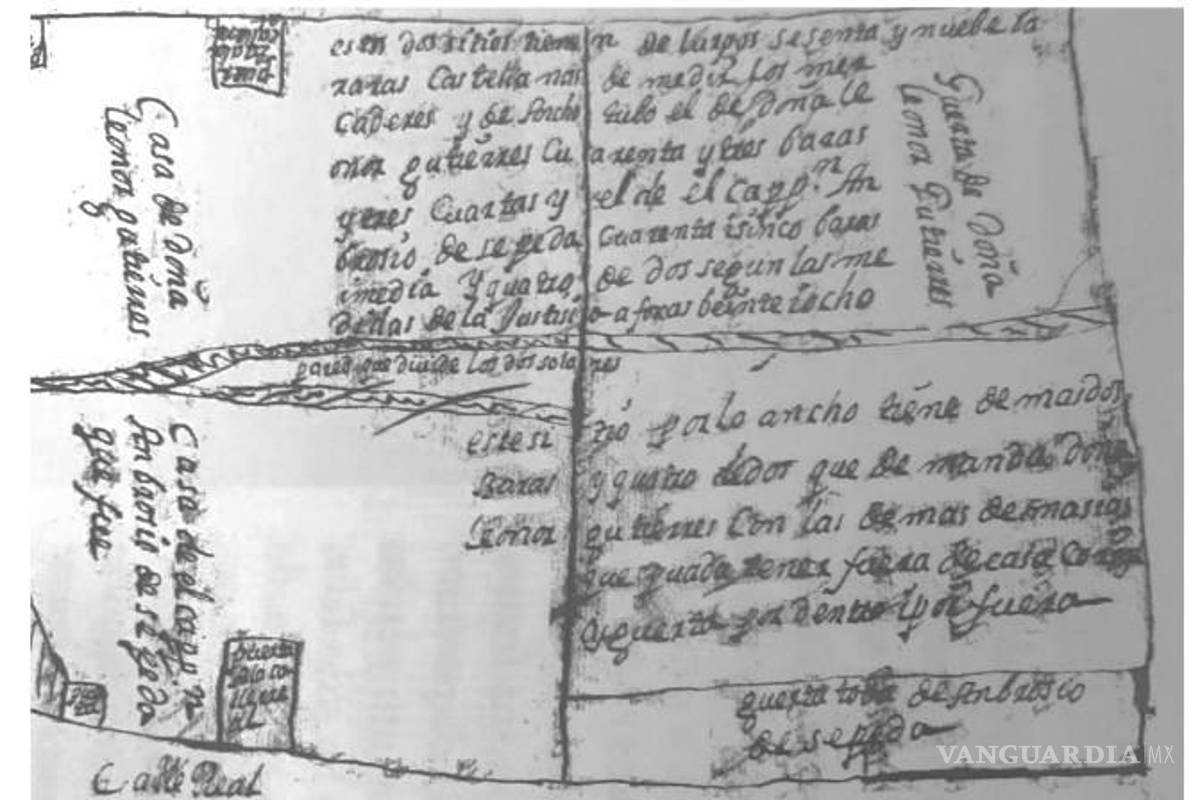 estos dos sitios tienen de largos sesenta y nuebe ba
raras Castellanas de medir los mer
caderes y de Ancho tubo el de doña le
onor gutierres Cuarenta y tres baras
y tres Cuartas y el de el capp.n An
brosio de sepeda Cuarenta isinco baras
imedia Y quatro de dos segun las me
didas de la Justisia aforas beinte iocho
Casa de doña
leonor gutierres
Guerta de doña
leonor Gutierres
pared que diuide los dos solares
este sitio por lo ancho tiene de mas dos
Baras y quatro dedos que de manda dona
Leonor gutierres Con las de mas demasias
que pueda tener fuera de casa Como
guerta por dentro ypor fuera
Casa de el capp.n
Anbrosio de sepeda
que fue
puerta
calle
guerta toda de Anbrosio
de sepeda
Calle Real
VANGUARDIA MX